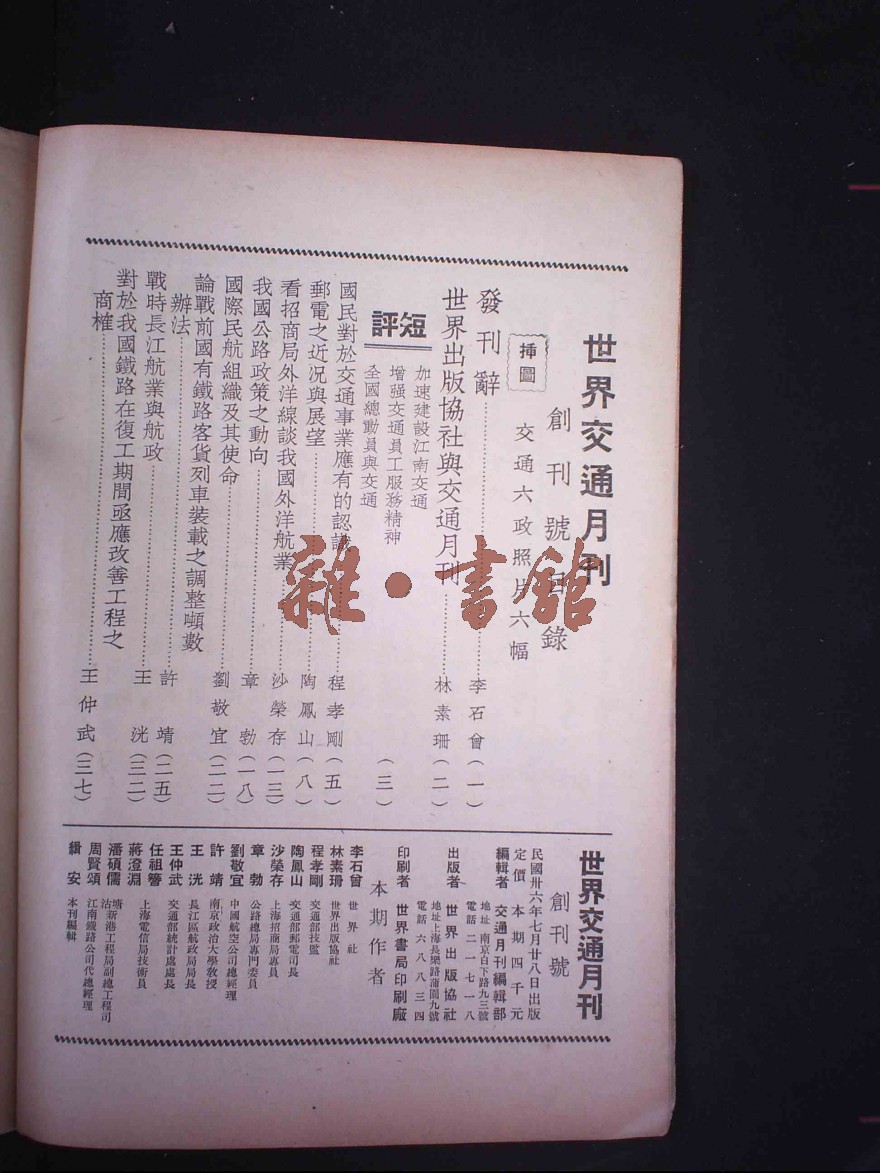 世界交通月刊
創刊號目錄
挿圖
交通六政照片六幅
發刊辭……李石曾（一）
世界出版協社與交通月刊……林素珊（二）
短評
加速建設江南交通
增强交通員工服務精神
全國總動員與交通
（三）
國民對於交通事業應有的認識……程孝剛（五）
郵電之近况與展望……陶鳳山（八）
看招商局外洋線談我國外洋航業……沙榮存（一三）
我國公路政策之動向……章勃（一八）
國際民航組織及其使命……劉敬宜（二二）
論戰前國有鐵路客貨列車裝載之調整噸數
辦法……許靖（二五）
戰時長江航業與航政……王洸（三二）
對於我國鐵路在復工期間亟應改善工程之
商榷……王仲武（三七）
世界交通月刊
創刊號
民國卅六年七月廿八日出版
定價 本期四千元
編輯者 交通月刊編輯部
地址 南京白下路九三號
電話 二一七一八
出版者 世界出版協社
地址 上海長樂路蒲園九號
電話 六八八三四
印刷者 世界書局印刷廠
本期作者
李石曾 世界社
林素珊 世界出版協社
程孝剛 交通部技監
陶鳳山 交通部郵電司長
沙榮存 上海招商局專員
章勃 公路總局專門委員
劉敬宜 中國航空公司總經理
許靖 南京政治大學教授
王洸 長江區航政局局長
王仲武 交通部統計處處長
任祖簪
蔣澄淵 上海電信局技術員
潘碩儒 塘沽新港工程局副總工程司
周賢頌 江南鐵路公司代總經理
緝安 本刊編輯
雜·書館